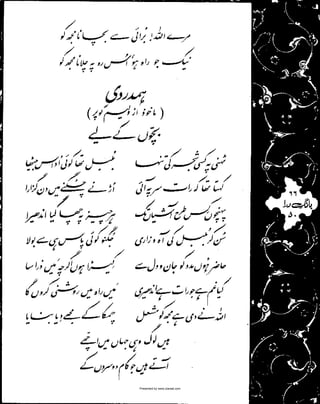 مرے اللہ! برائی سے بچانا مجھ کو
نیک جو راہ ہو، اس رہ پہ چلانا مجھ کو
ہمدردی
( ماخوذ از ولیم کوپر )
بچوں کے لیے
ٹہنی پہ کسی شجر کی تنہا بلبل تھا کوئی اداس بیٹھا
کہتا تھا کہ رات سر پہ آئی اڑنے چگنے میں دن گزارا
پہنچوں کس طرح آشیاں تک ہر چیز پہ چھا گیا اندھیرا
سن کر بلبل کی آہ و زاری جگنو کوئی پاس ہی سے بولا
حاضر ہوں مدد کو جان و دل سے کیڑا ہوں اگرچہ میں ذرا سا
کیا غم ہے جو رات ہے اندھیری میں راہ میں روشنی کروں گا
اللہ نے دی ہے مجھ کو مشعل چمکا کے مجھے دیا بنایا
ہیں لوگ وہی جہاں میں اچھے
آتے ہیں جو کام دوسروں کے
۶۶
بانگ درا
۵۰
Presented by www.ziaraat.com